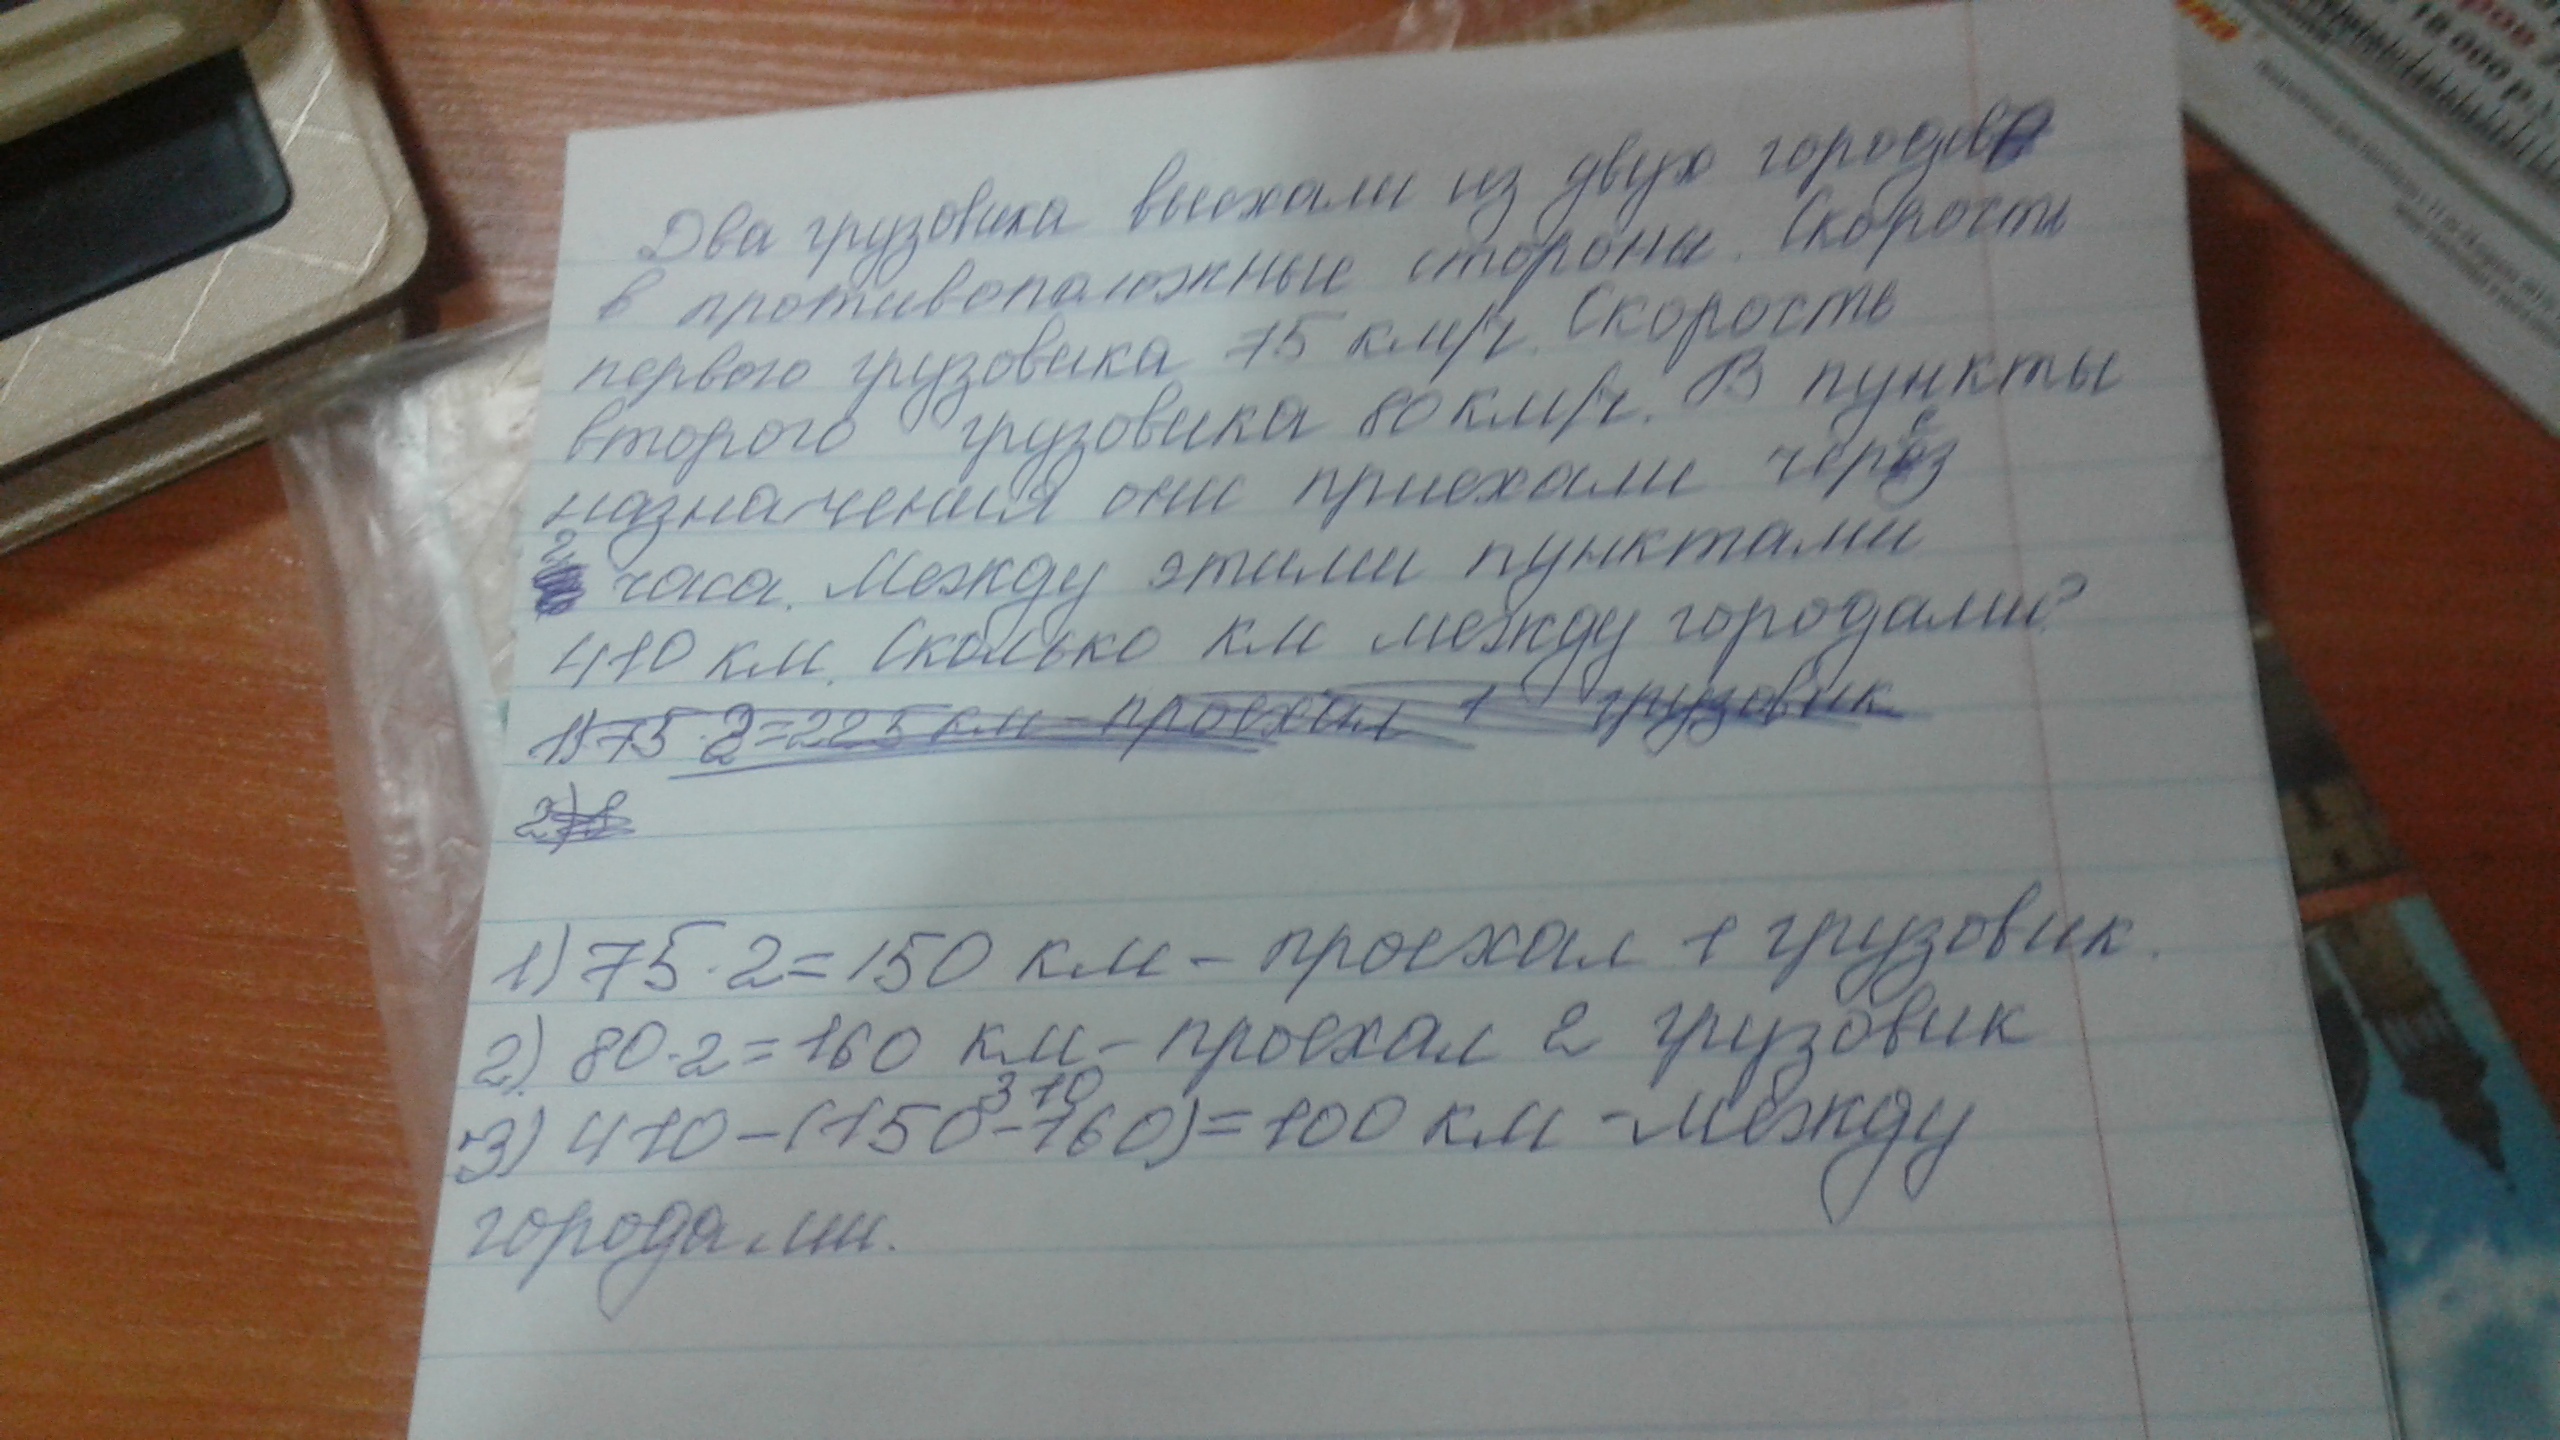 Два грузовика выехали из двух городов
в противоположные стороны. Скорость
первого грузовика 75 км/ч. Скорость
второго грузовика 80 км/ч. В пункты
назначения они приехали через
2 часа. Между этими пунктами
410 км. Сколько км между городами?
1) 75·3=225 км - проехал 1 грузовик
2)
1) 75·2=150 км - проехал 1 грузовик.
2) 80·2=160 км - проехал 2 грузовик
310
3) 410-(150-160)=100 км - между
городами.
18 000 р.